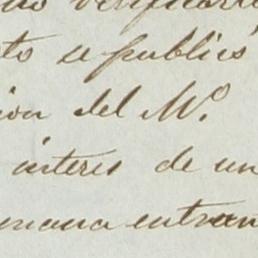 verificar
to se publicó
ion del M.º
interes de un
emana entran